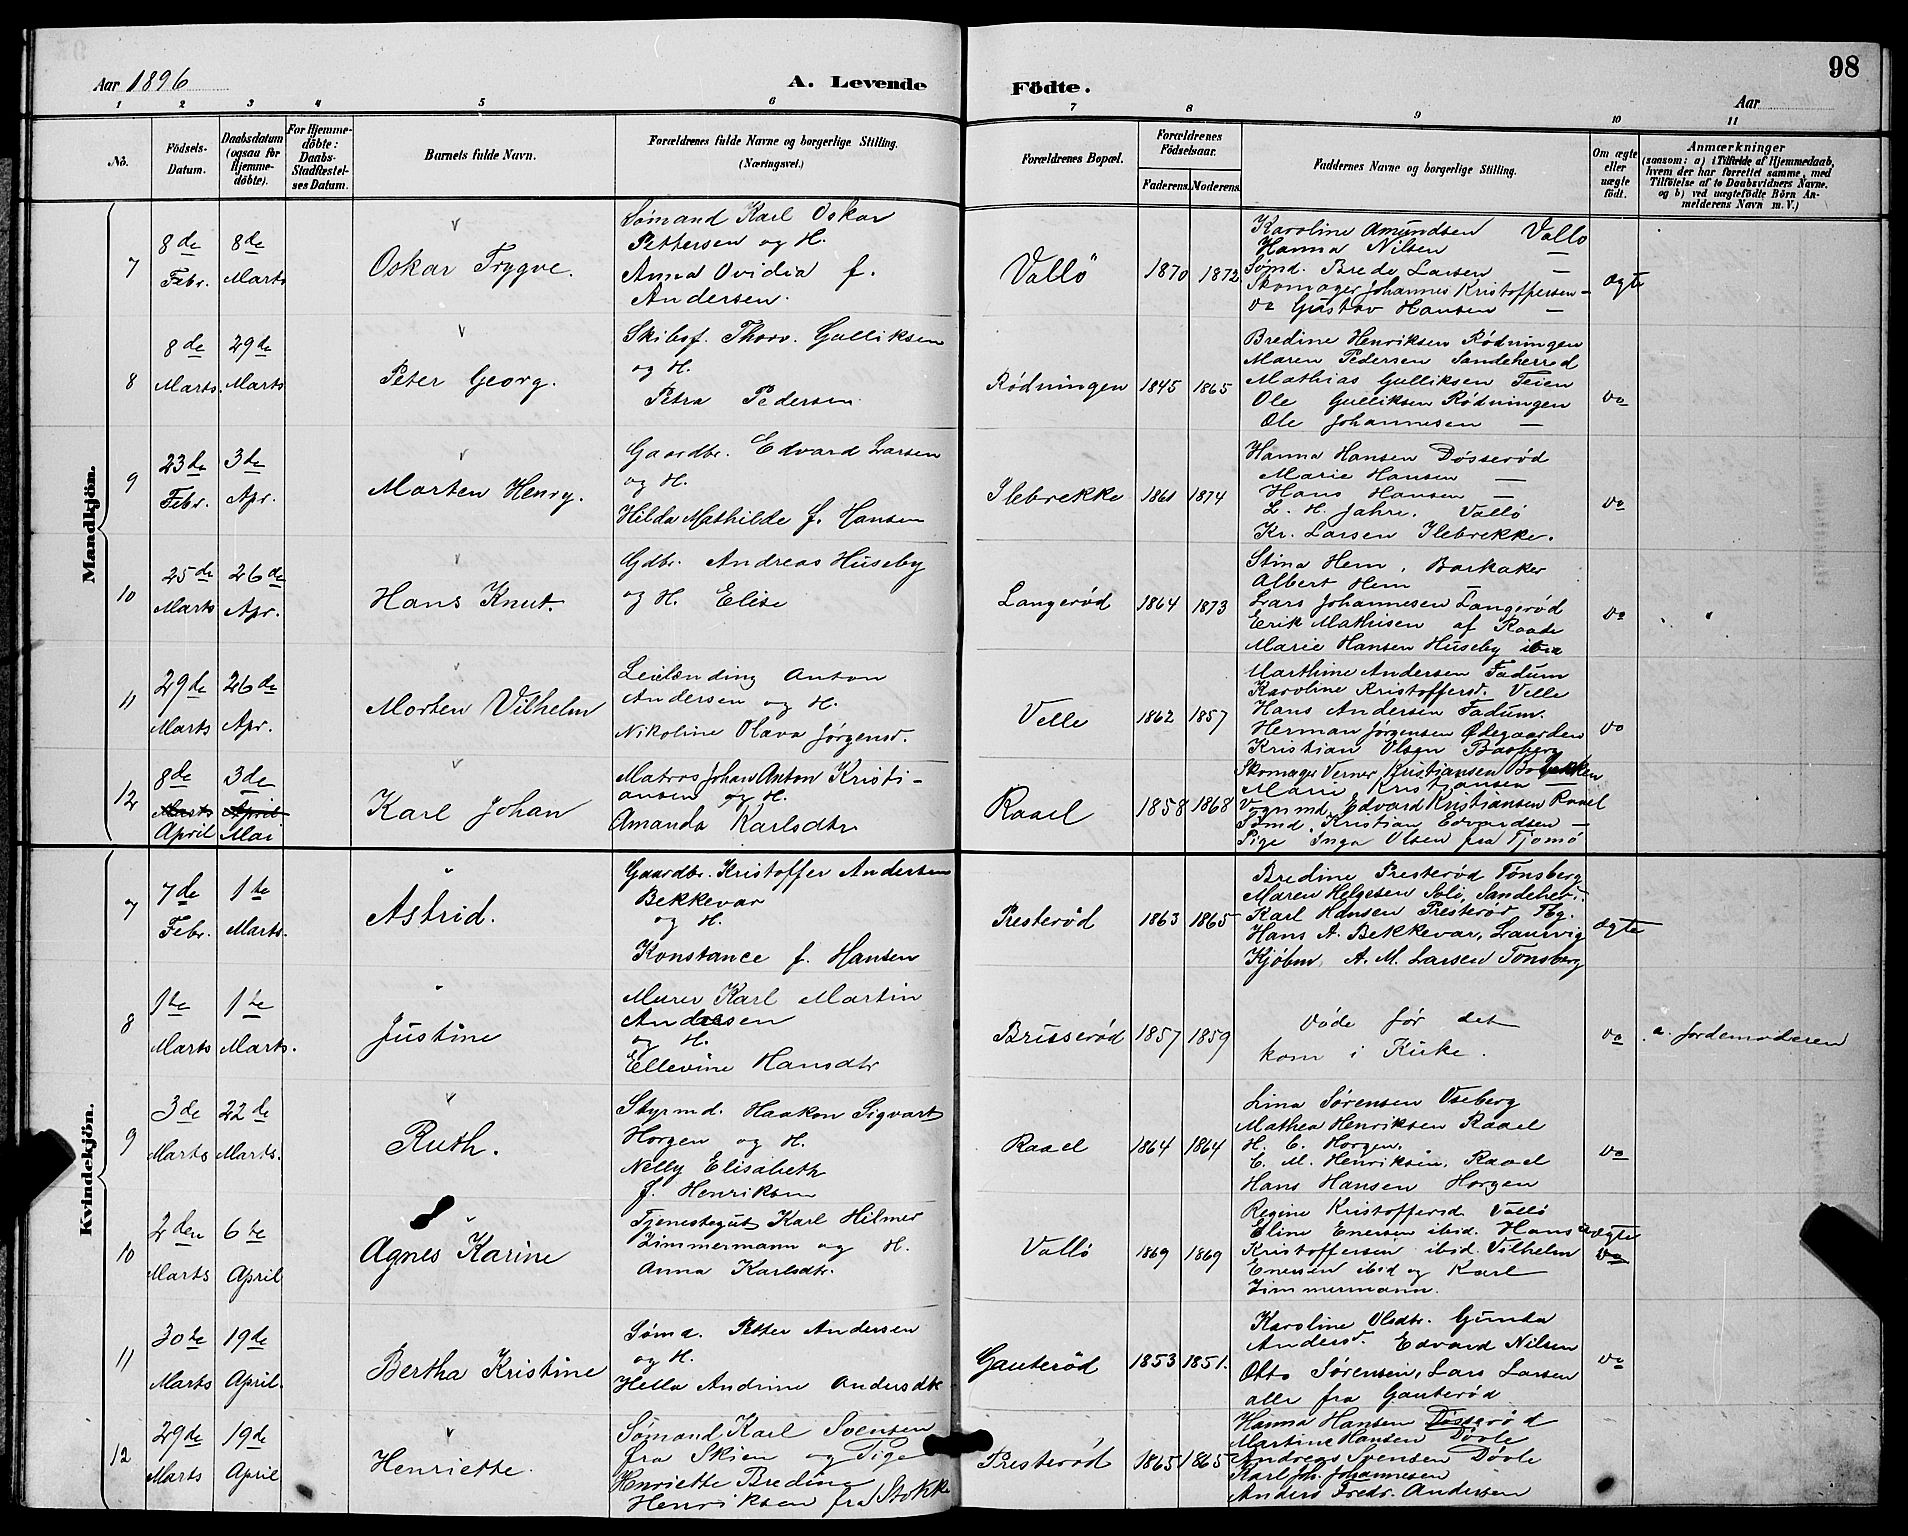 98
Aar 1896
A. Levende
Födte.
Aar
1 2 3 4 5 6 7 8 9 10 11
No.
Födsels-Datum.
Daabsdatum (ogsaa for Hjemme-döbte).
For Hjemme-döbte: Daabs-Stadfæstel-ses Datum.
Barnets fulde Navn.
Forældrenes fulde Navne og borgerlige Stilling. (Næringsvei.)
Forældrenes Bopæl.
Forældrenes Födselsaar.
Faderens. Moderens.
Faddernes Navne og borgerlige Stilling.
Om ægte eller uægte födt.
Anmærkninger
(saasom: a) i Tilfælde af Hjemmedaab, hvem der har forrettet samme, med Tilföielse af to Daabsvidners Navne. og b) ved uægtefödte Börn An-melderens Navn m. V.)
Mandkjön.
7
8de Febr.
8de Marts
Oskar Trygve.
Sømand Karl Oskar
Pettersen og H.
Anna Ovidia f.
Andersen.
Vallö
1870 1872
Karoline Amundsen Vallö
Hanna Nilsen —
Sømd. Brede Larsen —
Skomager Johannes Kristoffersen —
do Gustav Hansen —
ægte
8
8de Marts.
29de Marts
Peter Georg.
Skibsf. Thorv. Gulliksen
og H.
Petra Pedersen
Rødningen
1845 1865
Bredine Henriksen Rødningen
Maren Pedersen Sandeherred
Mathias Gulliksen Feien
Ole Gulliksen Rødningen
Ole Johannesen —
do
9
23de Febr.
3de Apr.
Morten Henry.
Gaardbr. Edvard Larsen
og H.
Hilda Mathilde f. Hansen
Ilebrekke
1861 1874
Hanna Hansen Døsserød
Marie Hansen —
Hans Hansen —
L. H. Jahre. Vallö
Kr. Larsen Ilebrekke.
do
10
25de Marts
26de Apr.
Hans Knut.
Gdbr. Andreas Huseby
og H. Elise
Langerød
1864 1873
Stina Hem, Barkaker
Albert Hem —
Lars Johannesen Langerød
Erik Mathisen af Raade
Marie Hansen Huseby ibid
do
11
29de Marts
26de Apr.
Morten Vilhelm
Leilænding Anton
Andersen og H.
Nikoline Olava Jørgensd.
Velle
1862 1857
Marthine Andersen Fadum
Karoline Kristoffersd. Velle
Hans Andersen Fadum.
Herman Jørgensen Ødegaarden
Kristian Olsen Basberg
do
12
8de Marts April
3de April Mai
Karl Johan
Matros Johan Anton Kristi-
ansen og H.
Amanda Karlsdtr
Raael
1858 1868
Skomager Verner Kristiansen
Marie Kristiansen —
Vognmd. Edvard Kristiansen Raael
Sømd. Kristian Edvardsen —
Pige Inga Olsen fra Tjømø
Kvindekjön.
7
7de Febr.
1te Marts.
Astrid.
Gaardbr. Kristoffer Andersen
Bekkevar
og H.
Konstance f. Hansen
Presterød
1863 1865
Bredine Presterød Tønsberg
Maren Helgesen Solö, Sandeherr.
Karl Hansen Presterød Tbg.
Hans A. Bekkevar, Laurvig
Kjøbm. A. M. Larsen Tønsberg
ægte
8
1te Marts
1te Marts.
Justine
Murer Karl Martin
Andersen
og H.
Ellevine Hansdtr
Brusserød
1857 1859
Døde før det
kom i Kirke.
do
a. Jordemoderen
9
3de Marts
22de Marts.
Ruth.
Styrmd. Haakon Sigvart
Horgen og H.
Nelly Elisabeth
f. Henriksen
Raael
1864 1864
Lina Sørensen Oseberg
Mathea Henriksen Raael
H. C. Horgen,
C. M. Henriksen, Raael
Hans Hansen Horgen
do
10
2den Marts
6te April
Agnes Karine
Tjenestegut Karl Hilmer
Zimmermann og H.
Anna Karlsdtr.
Vallö
1869 1869
Regine Kristoffersd. Vallö
Eline Enersen ibid. Hans
Kristoffersen ibid. Vilhelm
Enersen ibid og Karl
Zimmermann.
uægte
do
11
30te Marts
19de April.
Bertha Kristine
Sømd. Petter Andersen
og H.
Hella Andrine Andersdtr
Gauterød
1853 1851.
Karoline Olsdtr. Gunda
Andersd. Edvard Nilsen
Otto Sørensen, Lars Larsen
alle fra Gauterød
do
12
29de Marts
19de April
Henriette.
Sømand Karl Svensen
fra Skien og Pige
Henriette Bredine
Henriksen fra Stokke
Presterød
1865 1865
Hanna Hansen Døsserød
Martine Hansen Døvle
Andreas Svensen Døvle
Karl Joh. Johannesen
Anders Fredr. Andersen